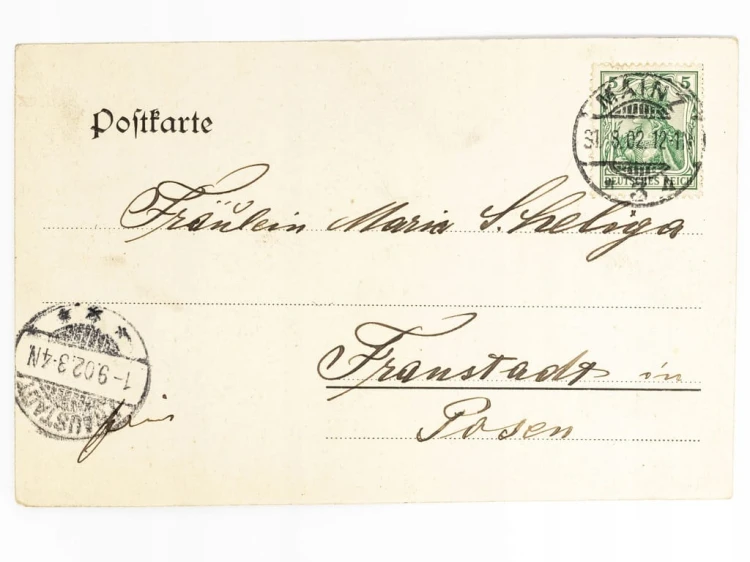 Postkarte
5 5
MAINZ
31.8.02.12-1N
* 3 *
DEUTSCHES REICH
Fräulein Maria Scheliga
Fraustadt in
Posen
1-9.02.3-4N
FRAUSTADT